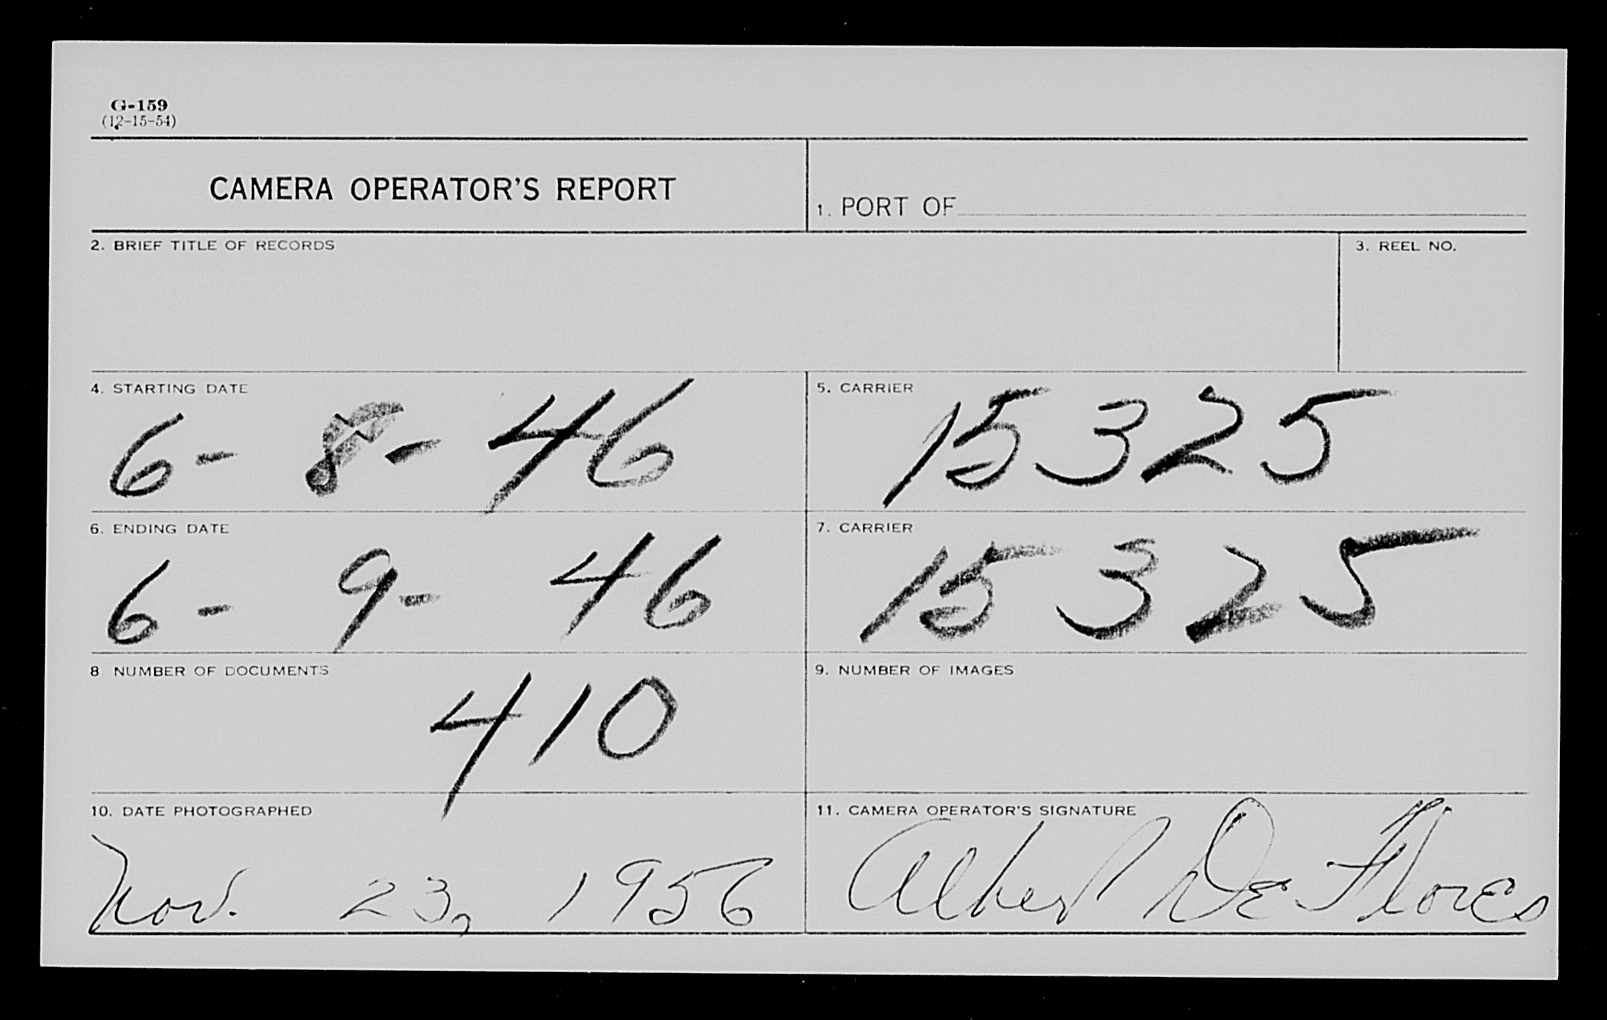 G-159
(12-15-54)
CAMERA OPERATOR'S REPORT
1. PORT OF
2. BRIEF TITLE OF RECORDS
3. REEL NO.
4. STARTING DATE
6- 8- 46
5. CARRIER
15325
6. ENDING DATE
6- 9- 46
7. CARRIER
15325
8 NUMBER OF DOCUMENTS
410
9. NUMBER OF IMAGES
10. DATE PHOTOGRAPHED
Nov. 23, 1956
11. CAMERA OPERATOR'S SIGNATURE
Albert De Flores